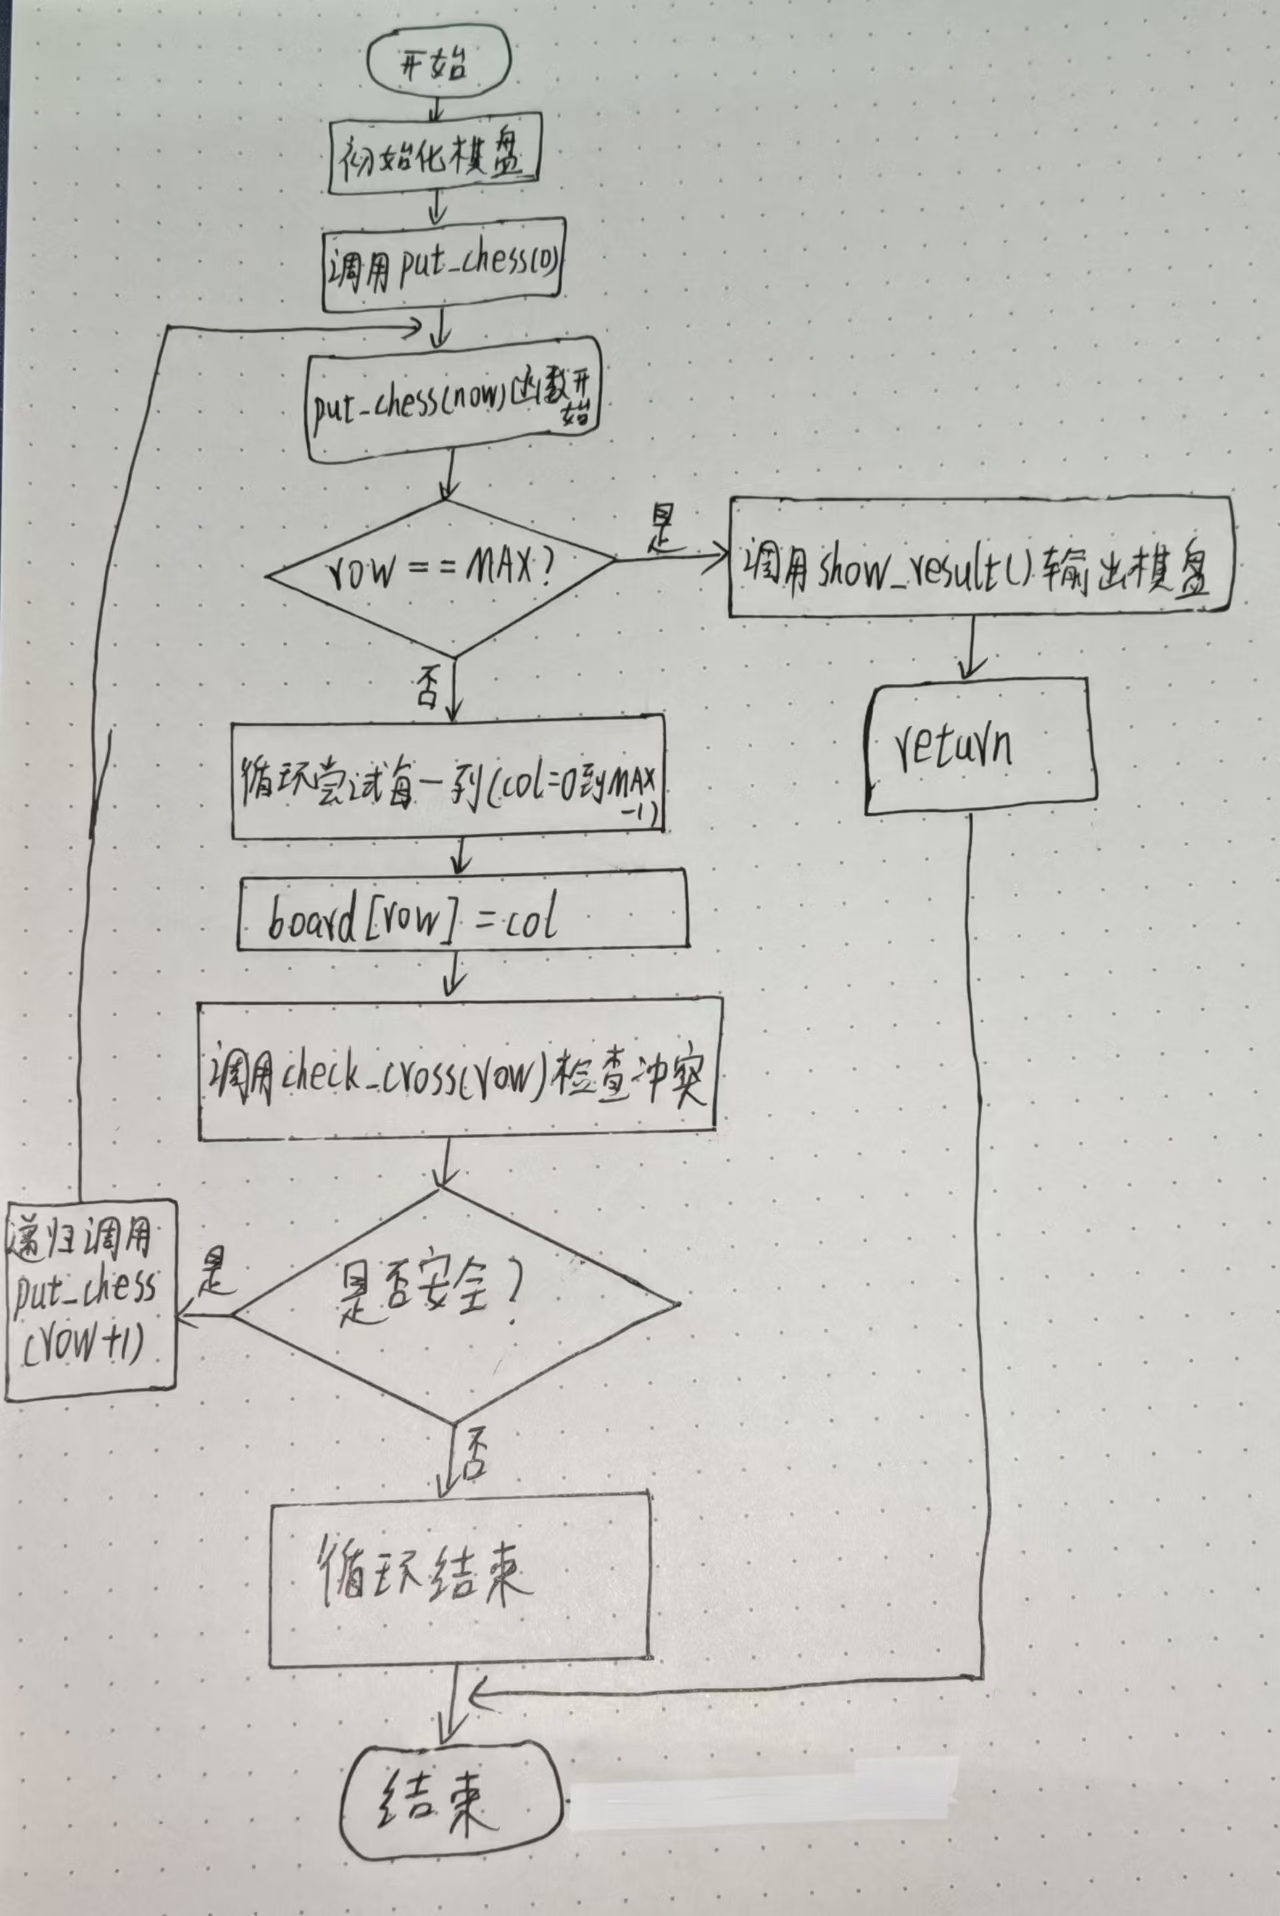 开始
初始化棋盘
调用put_chess(0)
put_chess(now)函数开
始
row==MAX?
是
调用show_result()输出棋盘
否
return
循环尝试每一列(col=0到MAX
-1)
board[row]=col
调用check_cross(row)检查冲突
递归调用
put_chess
(row+1)
是
是否安全?
否
循环结束
结束